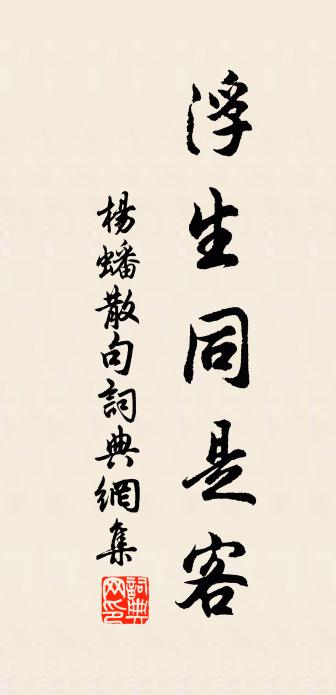 浮生同是客
楊蟠散句詞典網集
詞典网印